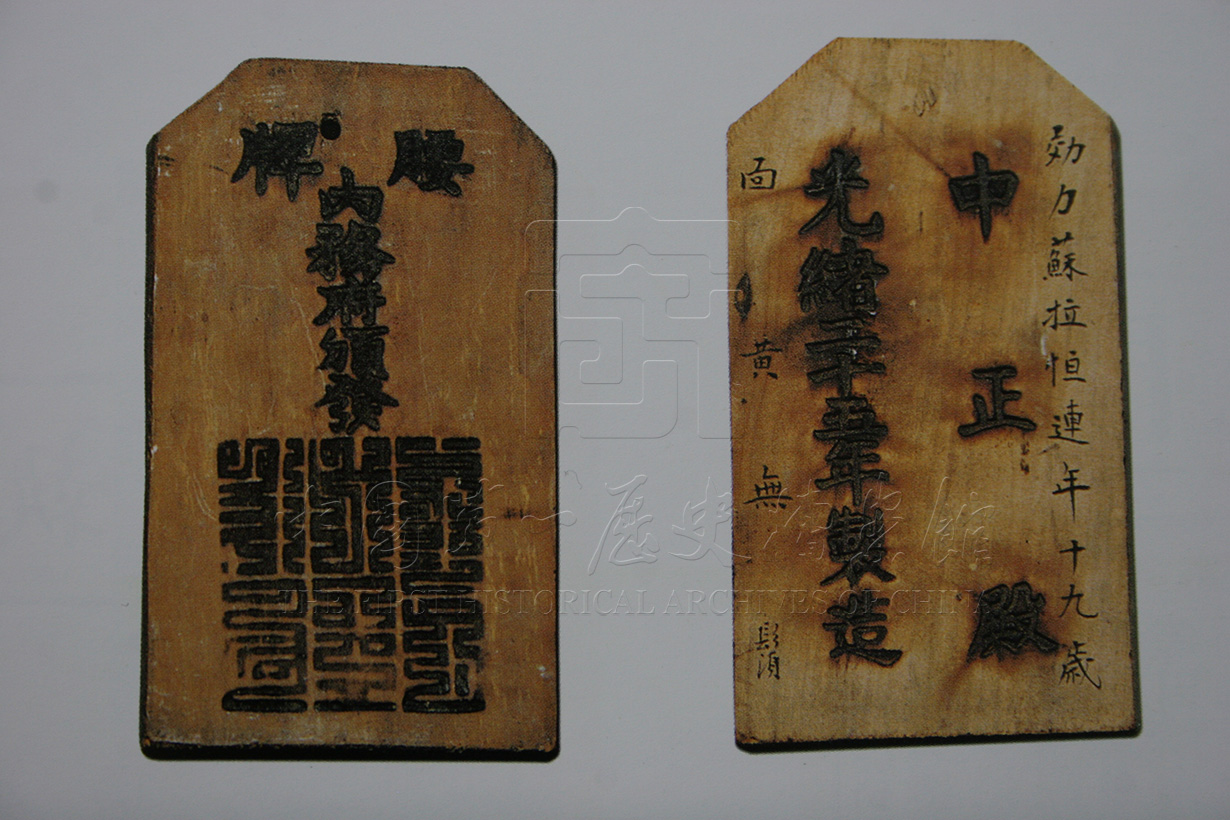 腰牌
內務府頒發
効力蘇拉恒連年十九歲
中正殿
光緒二十五年製造
面黃無鬚
中國第一歷史檔案館
THE FIRST HISTORICAL ARCHIVES OF CHINA